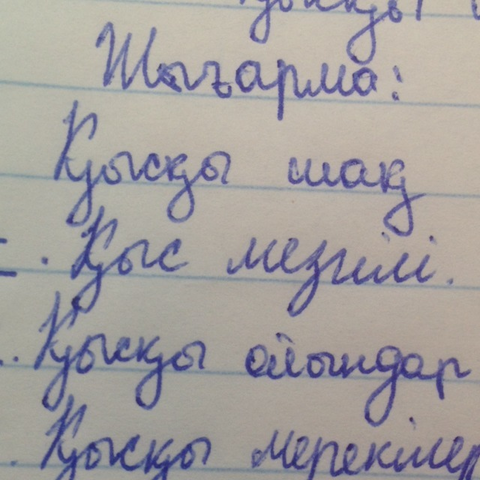 Қысқы
Жығарма:
Қысқы шақ
. Қыс мезгілі.
. Қысқы ойындар
. Қысқы мерекелер